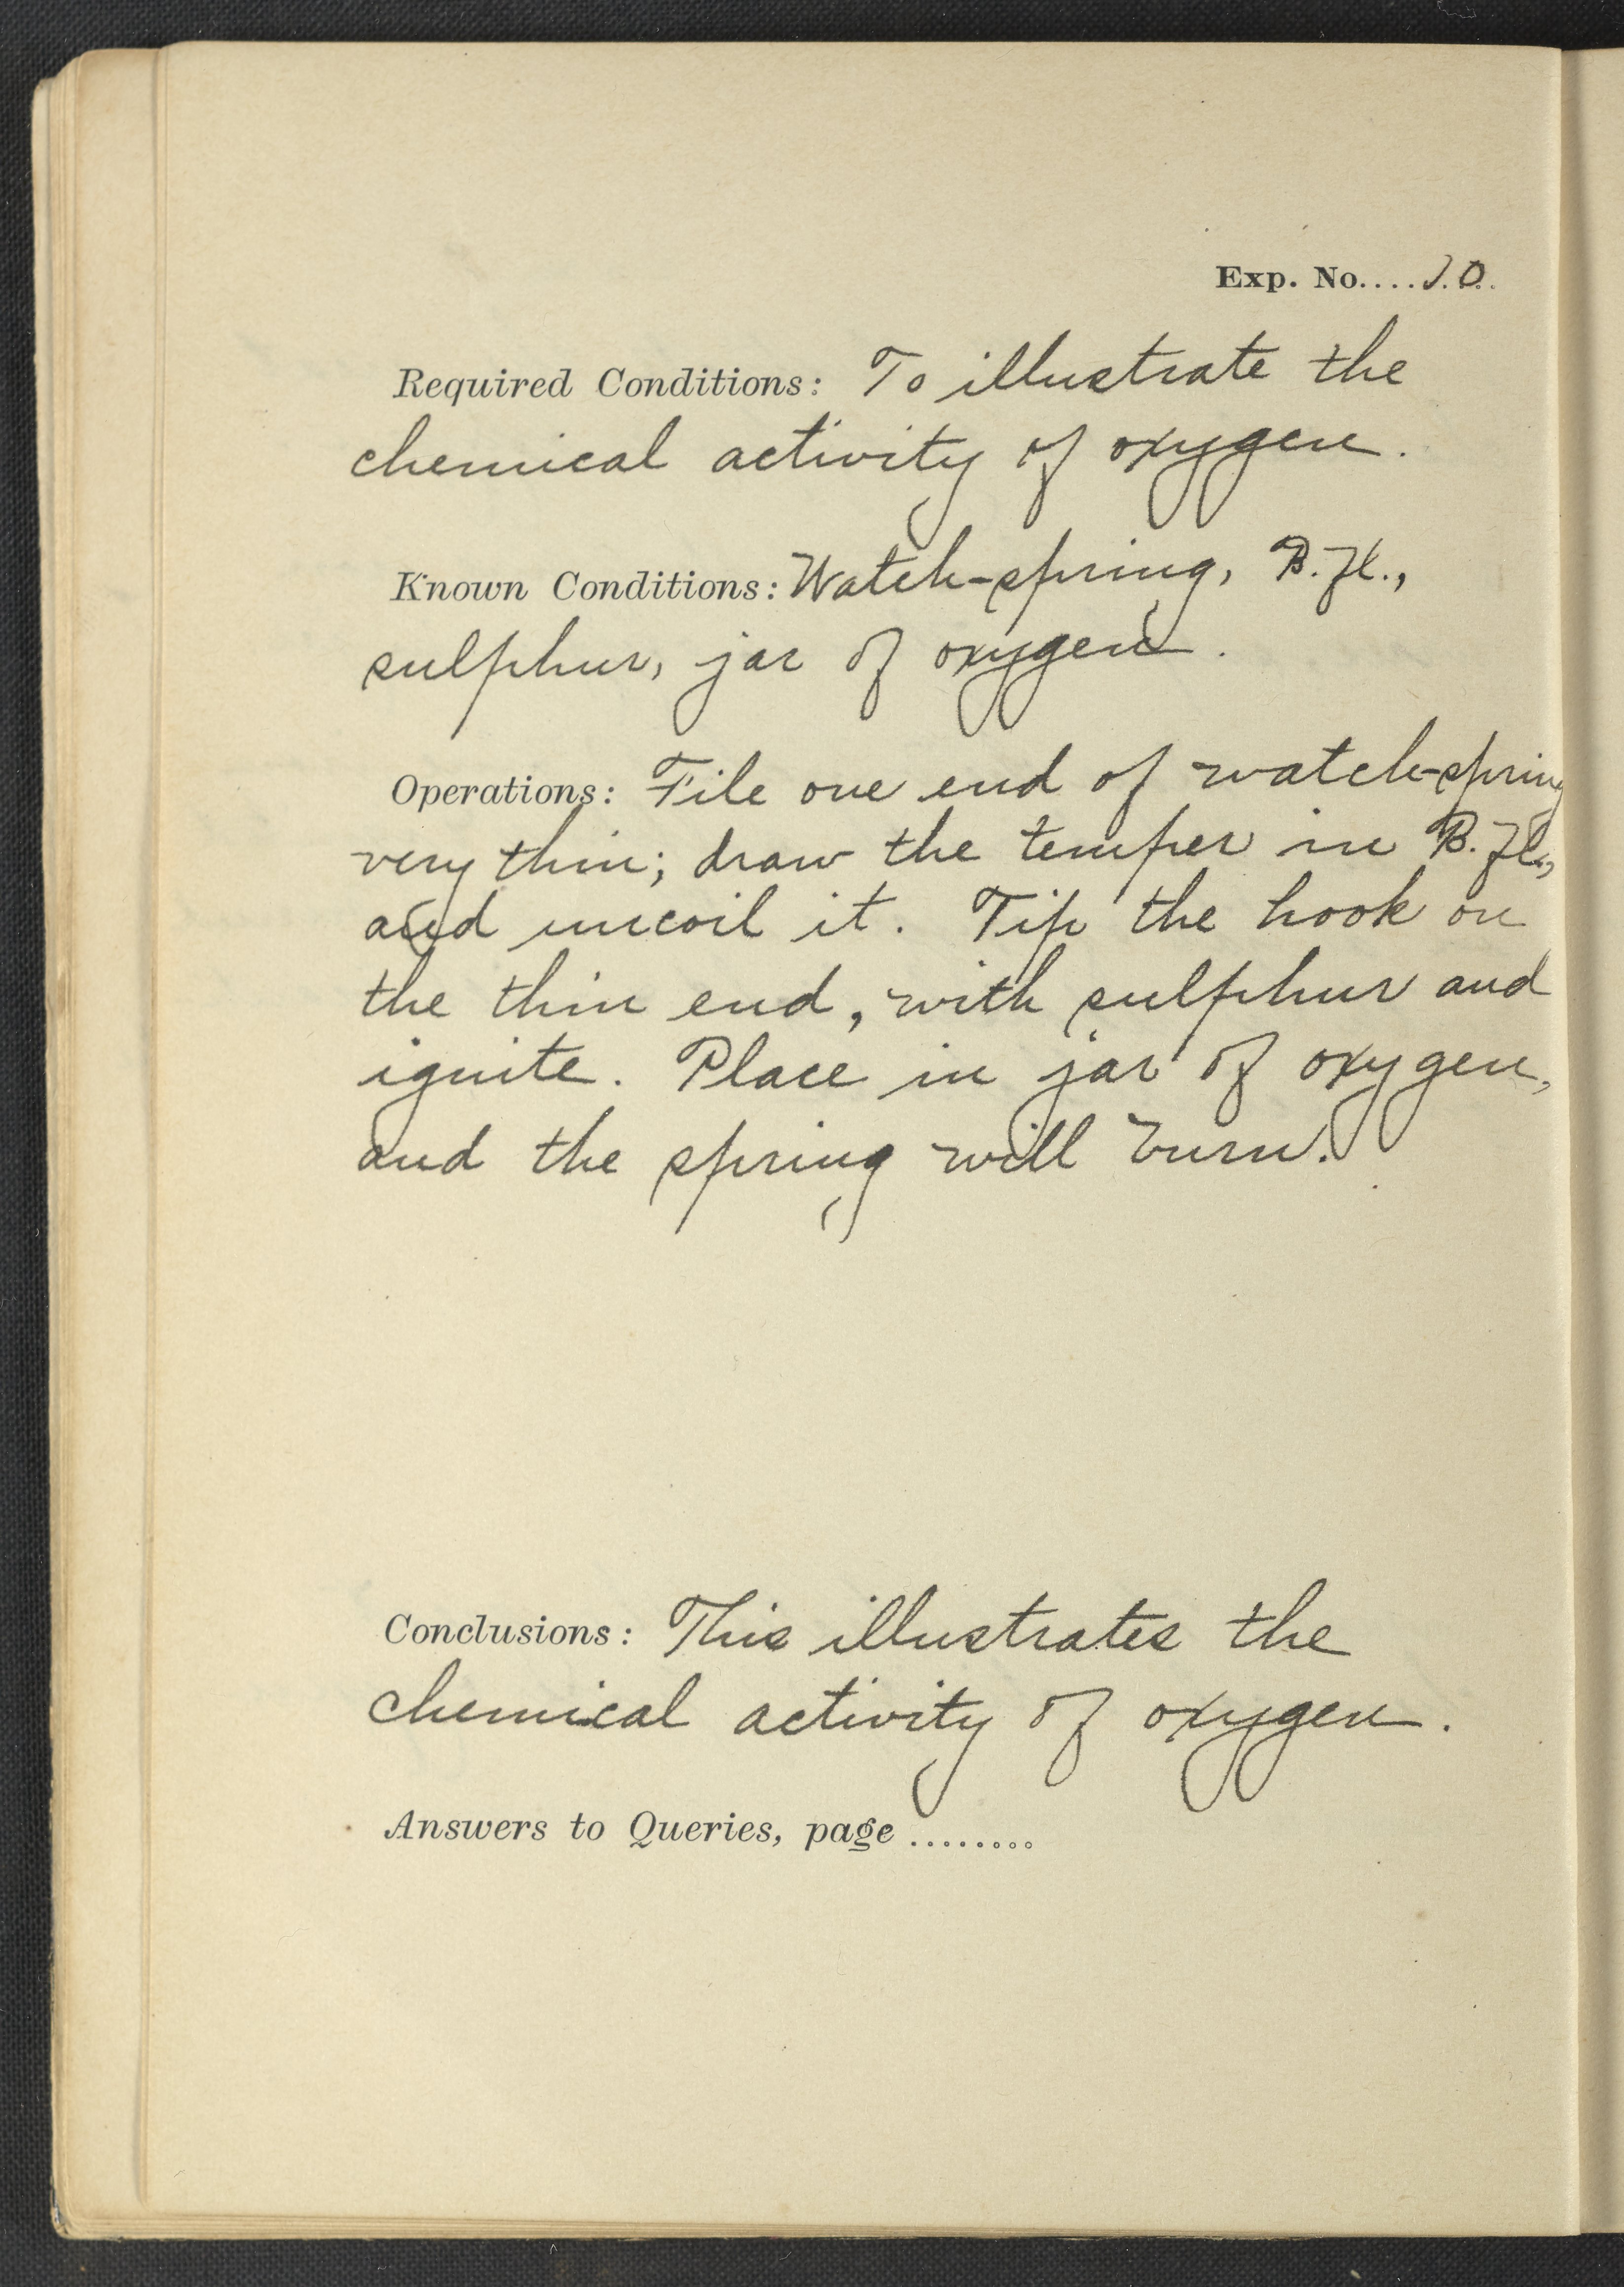 Exp. No....10..
Required Conditions: To illustrate the
chemical activity of oxygen.
Known Conditions: Watch-spring, B.Fl.,
sulphur, jar of oxygen.
Operations: File one end of watch-spring
very thin; draw the temper in B.Fl.,
and uncoil it. Tip the hook on
the thin end, with sulphur and
ignite. Place in jar of oxygen,
and the spring will burn.
Conclusions: This illustrates the
chemical activity of oxygen.
Answers to Queries, page ........